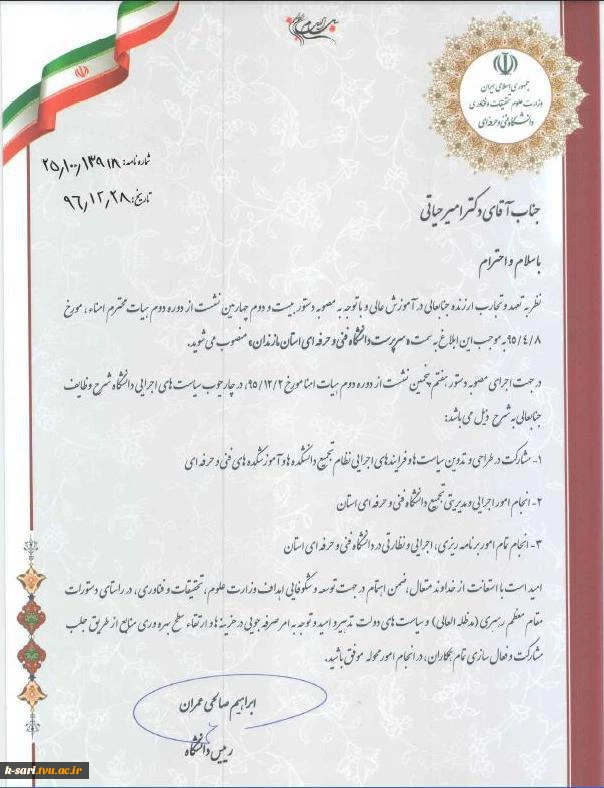 جمهوری اسلامی ایران
وزارت علوم تحقیقات و فناوری
دانشگاه فنی و حرفه ای
شماره نامه: ۲۵٫۱۰۰٫۱۳۹۱۸
تاریخ: ۹۶٫۱۲٫۲۸
جناب آقای دکتر امیر حیاتی
با سلام و احترام
نظر به تعهد و تجارب ارزنده جنابعالی در آموزش عالی و با توجه به مصوبه دستور بیست و دوم چهارمین نشست از دوره دوم هیات محترم امناء، مورخ
۹۵/۴/۸ به موجب این ابلاغ به سمت «سرپرست دانشگاه فنی و حرفه ای استان مازندران» منصوب می شوید.
در جهت اجرای مصوبه دستور هفتم پنجمین نشست از دوره دوم هیات امنا مورخ ۹۵/۱۲/۲، در چارچوب سیاست های اجرایی دانشگاه شرح وظایف
جنابعالی به شرح ذیل می باشد:
۱- مشارکت در طراحی و تدوین سیاست ها و فرایندهای اجرایی نظام تجمیع دانشکده ها و آموزشکده های فنی و حرفه ای
۲- انجام امور اجرایی و مدیریتی تجمیع دانشگاه فنی و حرفه ای استان
۳- انجام تمام امور برنامه ریزی، اجرایی و نظارتی در دانشگاه فنی و حرفه ای استان
امید است با استعانت از خداوند متعال، ضمن اهتمام در جهت توسعه و شکوفائی اهداف وزارت علوم، تحقیقات و فناوری، در راستای دستورات
مقام معظم رهبری (مدظله العالی) و سیاست های دولت تدبیر و امید و توجه به امر صرفه جویی در هزینه ها و ارتقاء سطح بهره وری منابع از طریق جلب
مشارکت و فعال سازی تمام همکاران، در انجام امور محوله موفق باشید.
ابراهیم صالحی عمران
رییس دانشگاه
k-sari.tvu.ac.ir